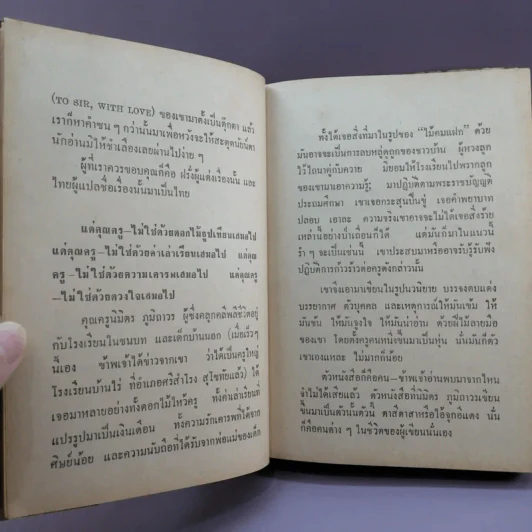 (TO SIR, WITH LOVE) ของเขามาตั้งเป็นตุ๊กตา แล้ว
เราก็หาคำชน ๆ กว่านั้นมาเพื่อหวังจะให้สะดุดนัยน์ตา
นักอ่านมิให้ข้าเลื่องเลยผ่านไปง่าย ๆ
ผู้ที่เราควรขอบคุณก็คือ ฝรั่งผู้แต่งเรื่องนั้น และ
ไทยผู้แปลชื่อเรื่องนั้นมาเป็นไทย
แด่คุณครู—ไม่ใช่ด้วยดอกไม้ธูปเทียนเสมอไป
แด่คุณครู—ไม่ใช่ด้วยค่าเล่าเรียนเสมอไป แด่คุณ
ครู—ไม่ใช่ด้วยความเคารพเสมอไป แด่คุณครู
—ไม่ใช่ด้วยดวงใจเสมอไป
คุณครูนิมิตร ภูมิถาวร ผู้ซึ่งคลุกคลีพลีชีวิตอยู่
กับโรงเรียนในชนบท และเด็กบ้านนอก (เมื่อเร็วๆ
นี้เอง ข้าพเจ้าได้ข่าวจากเขา ว่าได้เป็นครูใหญ่
โรงเรียนบ้านไร่ ที่อำเภอศรีสำโรง สุโขทัยแล้ว) ได้
เจอมาหลายอย่างทั้งดอกไม้ไหว้ครู ทั้งค่าเล่าเรียนที่
แปรรูปมาเป็นเงินเดือน ทั้งความรักเคารพที่ได้จาก
ศิษย์น้อย และความนับถือที่ได้รับจากพ่อแม่ของเด็ก
ทั้งได้เจอสิ่งที่มาในรูปของ “ไม้คมแฝก” ด้วย
มันอาจจะเป็นการลบหลู่ดูถูกของชาวบ้าน ผู้หวงลูก
ไว้ไถนาคู่กับควาย มิยอมให้โรงเรียนไปพรากลูก
ของเขามาเอาความรู้; มาปฏิบัติตามพระราชบัญญัติ
ประถมศึกษา เขาเจอกระสุนปืนขู่ เจอคำพยาบาท
ปลอบ เอาถะ ความจริงเขาอาจจะไม่ได้เจอสิ่งร้าย
เหล่านี้อย่างบ้าเถื่อนก็ได้ แต่มันก็มาในแนวนี้
ร้ำ ๆ จะเป็นเช่นนี้ เขาประสบมาหรืออาจรับรู้รับฟัง
ปฏิบัติการก้าวร้าวต่อครูดังกล่าวนั้น
เขาจึงเอามาเขียนในรูปนวนิยาย บรรจงตบแต่ง
บรรยากาศ ตัวบุคคล และเหตุการณ์ให้มันเข้ม ให้
มันข้น ให้มันจูงใจ ให้มันน่าอ่าน ด้วยฝีไม้ลายมือ
ของเขา โดยตั้งครูคนหนึ่งขึ้นมาเป็นหุ่น นั่นมันก็ตัว
เขาเองแหละ ไม่มากก็น้อย
ตัวหนังสือก็คือคน—ข้าพเจ้าอ่านพบมาจากไหน
จำไม่ได้เสียแล้ว ตัวหนังสือที่นิมิตร ภูมิถาวรเขียน
ขึ้นมาเป็นตัวนั้นตัวนี้ ตาสีตาสาหรือไอ้จุกอีแดง นั่น
ก็คือคนต่าง ๆ ในชีวิตของผู้เขียนนั่นเอง